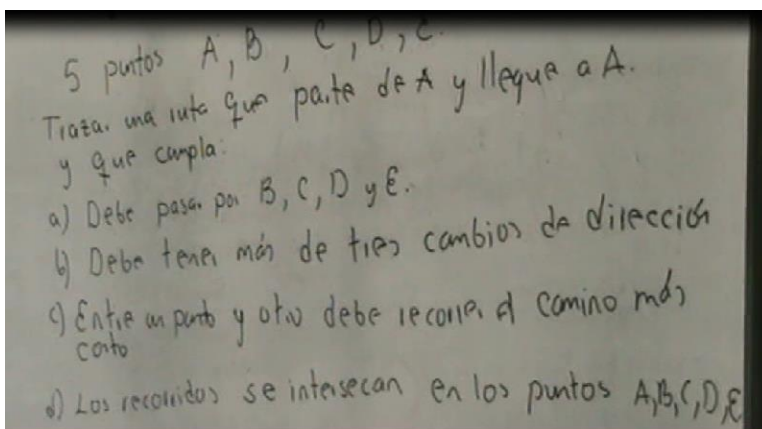 5 puntos A, B, C, D, E.
Trazar una ruta que parte de A y llegue a A.
y que cumpla:
a) Debe pasar por B, C, D y E.
b) Debe tener más de tres cambios de dirección
c) Entre un punto y otro debe recorrer el camino más
corto
d) Los recorridos se intersecan en los puntos A, B, C, D, E